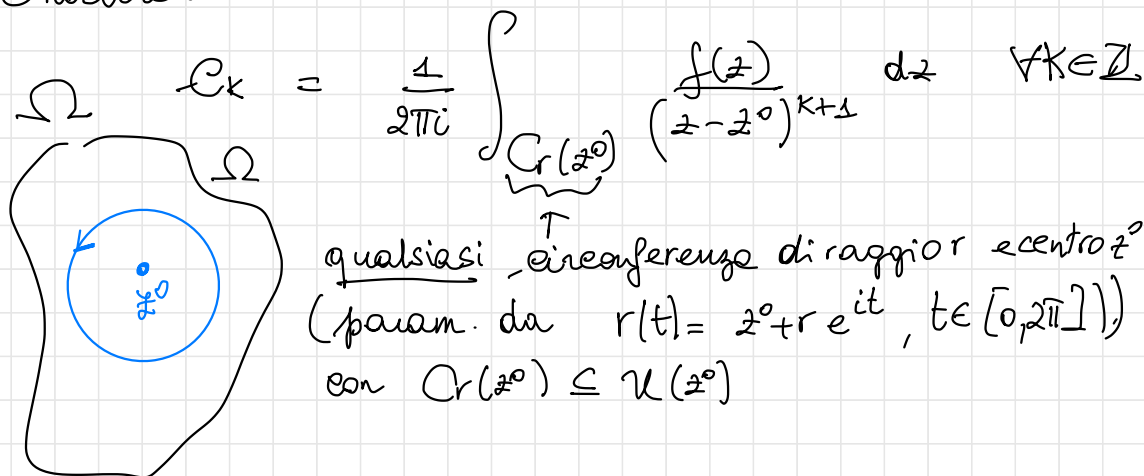 Ck = 1/2πi ∫Cr(z⁰) f(z)/(z-z⁰)^(k+1) dz ∀K∈ℤ
Ω
Ω
z⁰
↑
qualsiasi circonferenza di raggio r e centro z⁰
(param. da r(t) = z⁰+r e^(it), t∈[0,2π]))
con Cr(z⁰) ⊆ U(z⁰)